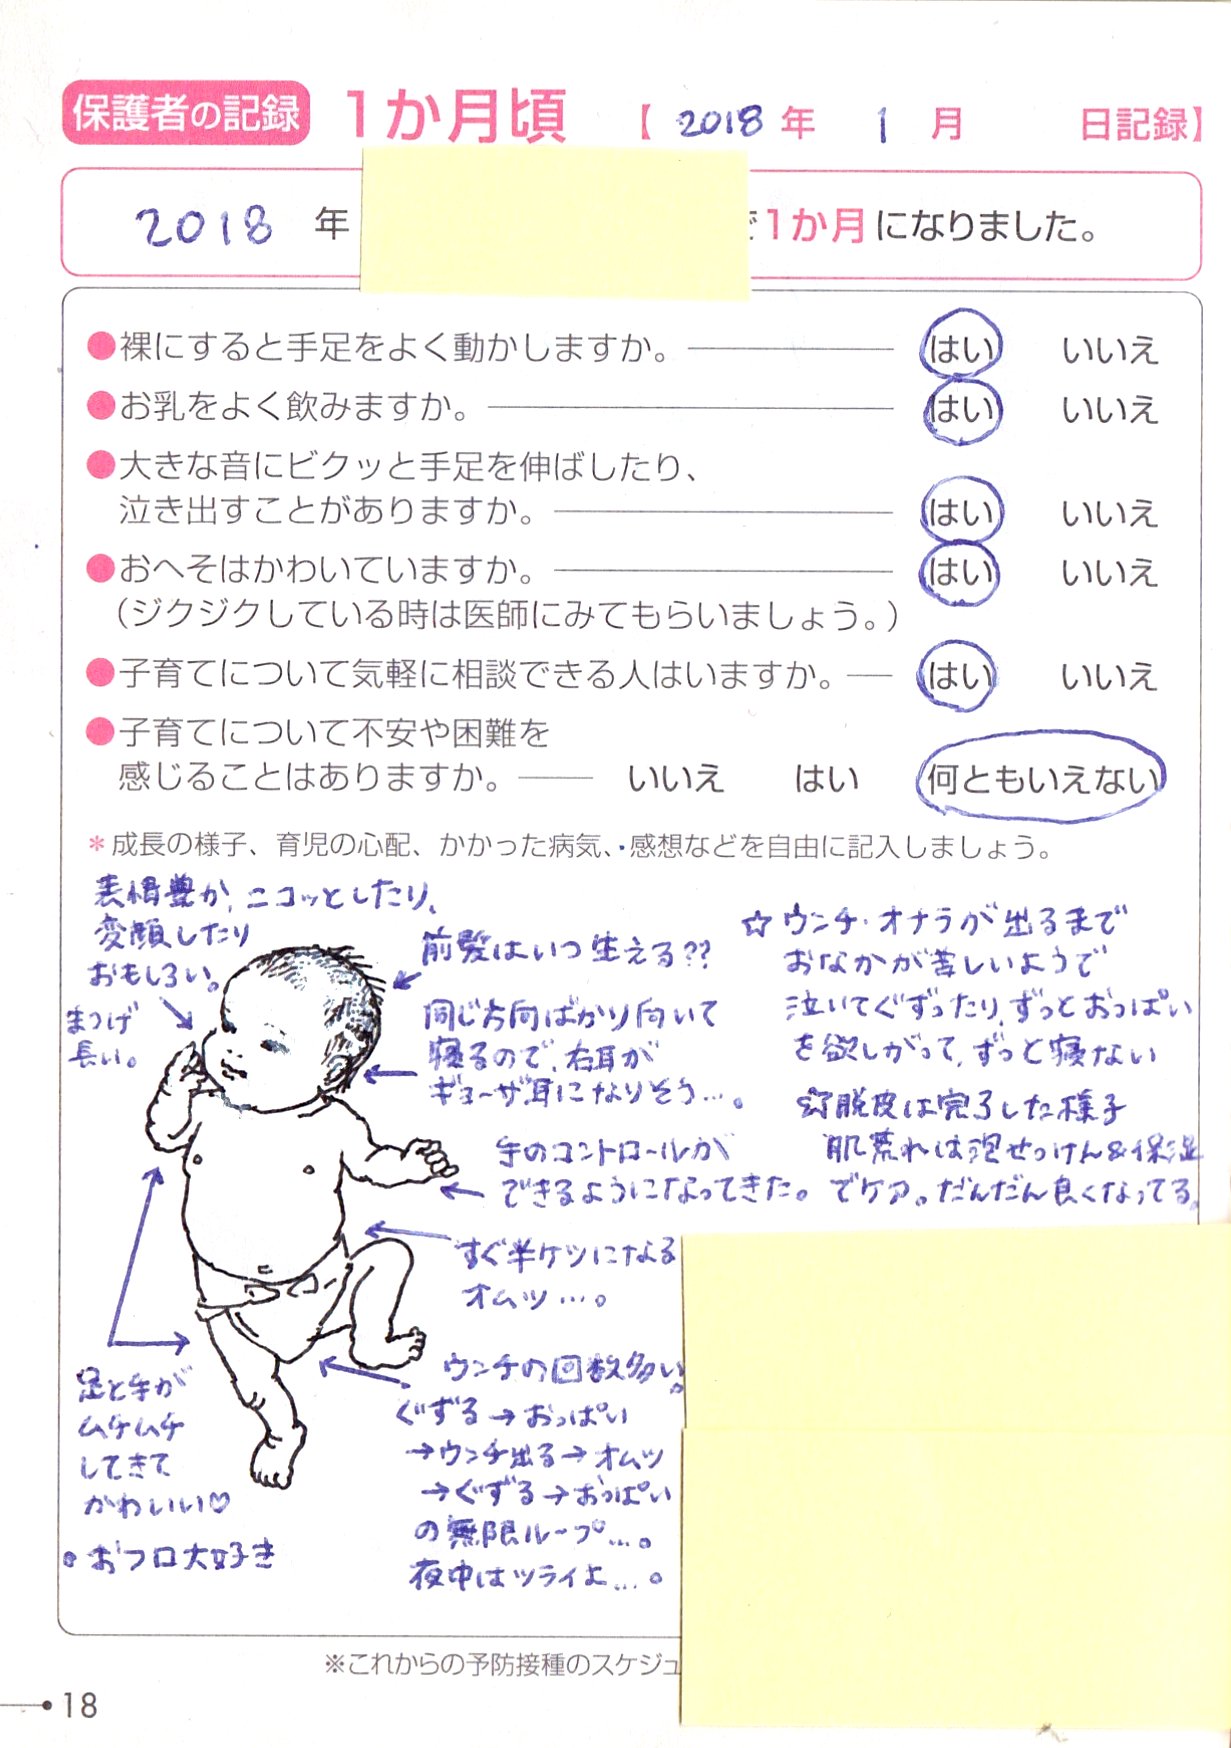 保護者の記録 1か月頃 【 2018 年 1 月 日記録】
2018 年 で1か月になりました。
●裸にすると手足をよく動かしますか。 はい いいえ
●お乳をよく飲みますか。 はい いいえ
●大きな音にビクッと手足を伸ばしたり、
泣き出すことがありますか。 はい いいえ
●おへそはかわいていますか。 はい いいえ
（ジクジクしている時は医師にみてもらいましょう。）
●子育てについて気軽に相談できる人はいますか。 はい いいえ
●子育てについて不安や困難を
感じることはありますか。 いいえ はい 何ともいえない
＊成長の様子、育児の心配、かかった病気、感想などを自由に記入しましょう。
表情豊か、ニコッとしたり、
変顔したり
おもしろい。
まつげ
長い。
前髪はいつ生える??
同じ方向ばかり向いて
寝るので、右耳が
ギョーザ耳になりそう…。
手のコントロールが
できるようになってきた。
すぐ半ケツになる
オムツ…。
ウンチの回数多い。
ぐずる→おっぱい
→ウンチ出る→オムツ
→ぐずる→おっぱい
の無限ループ…。
夜中はツライよ…。
足と手が
ムチムチ
してきて
かわいい♡
・おフロ大好き
☆ウンチ・オナラが出るまで
おなかが苦しいようで
泣いてぐずったり、ずっとおっぱい
を欲しがって、ずっと寝ない
☆脱皮は完了した様子
肌荒れは泡せっけん&保湿
でケア。だんだん良くなってる。
※これからの予防接種のスケジュ
18